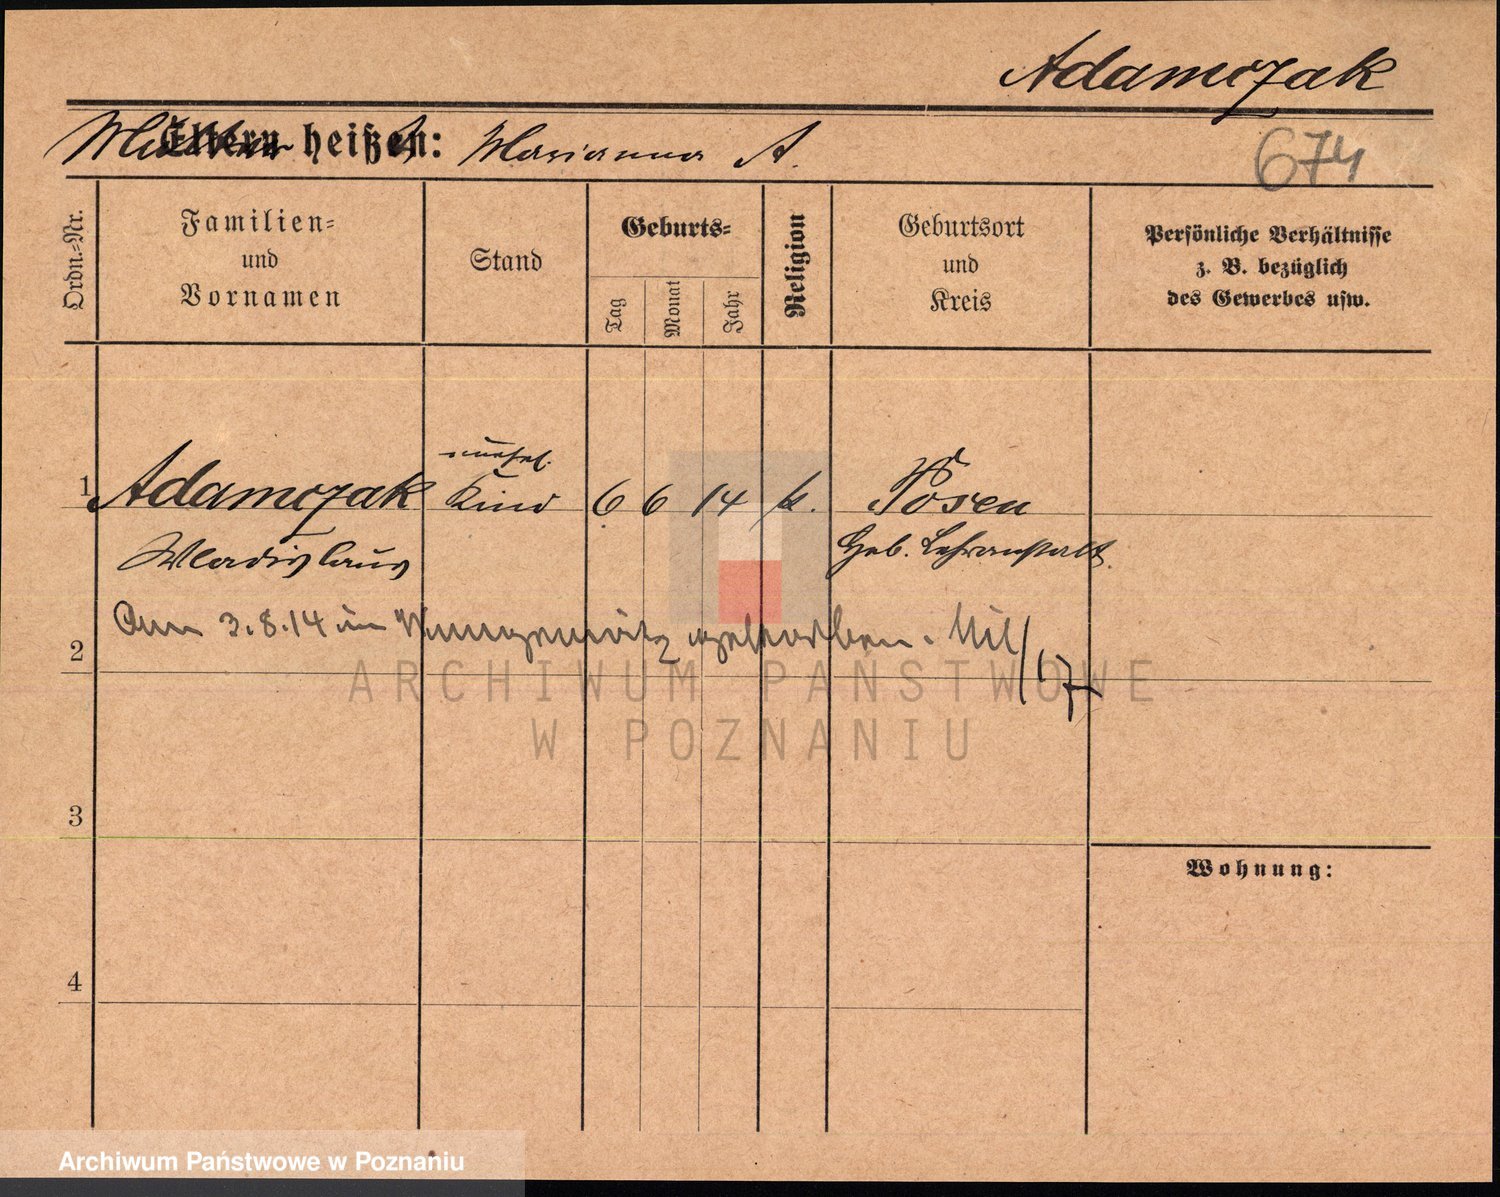 Adamczak
Eltern heißen: Mutter Marianna A.
674
Ordn.=Nr.
Familien=
und
Vornamen
Stand
Geburts=
Tag
Monat
Jahr
Religion
Geburtsort
und
Kreis
Persönliche Verhältnisse
z. B. bezüglich
des Gewerbes usw.
unehel.
1 Adamczak Kind 6 6 14 k. Posen
Wladislaus Geb. Lehranstalt.
Am 3.8.14 in gestorben.
2
ARCHIWUM PAŃSTWOWE
W POZNANIU
3
Wohnung:
4
Archiwum Państwowe w Poznaniu